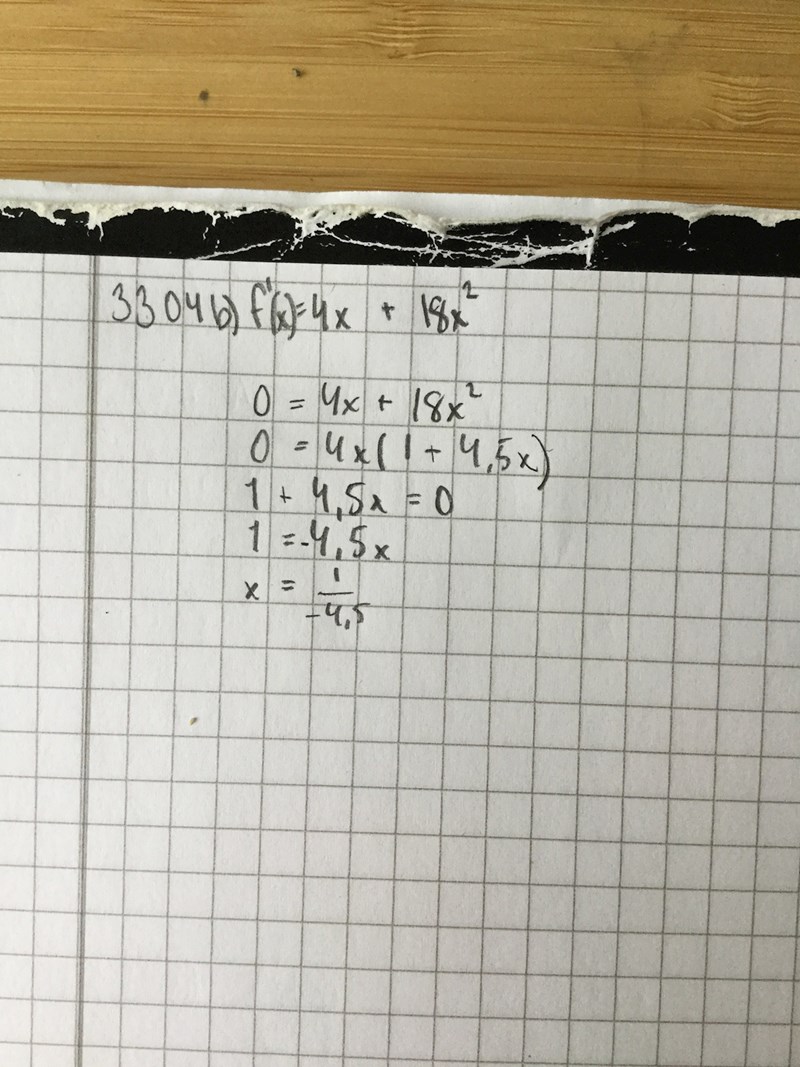 3304b) f'(x)=4x + 18x²
0 = 4x + 18x²
0 = 4x(1 + 4,5x)
1 + 4,5x = 0
1 =-4,5x
x = 1/-4,5